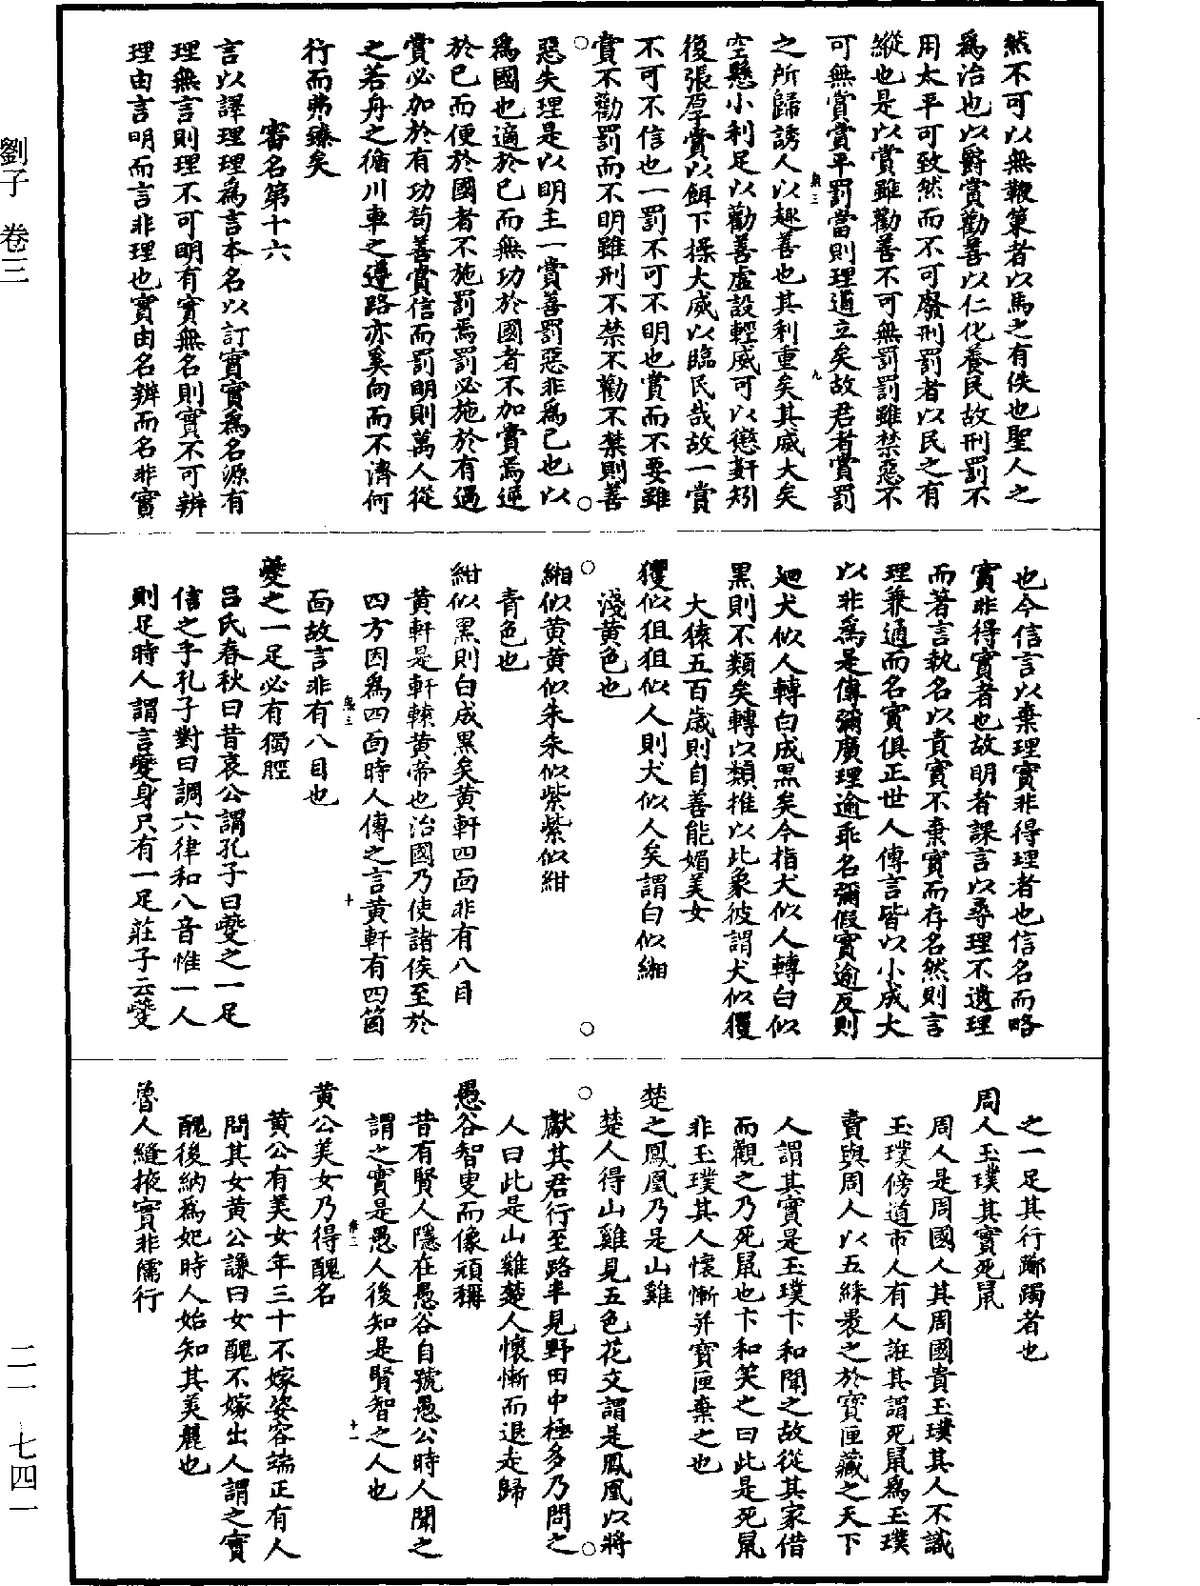 然不可以無鞭策者以馬之有佚也聖人之
爲治也以爵賞勸善以仁化養民故刑罰不
用太平可致然而不可廢刑罰者以民之有
縱也是以賞雖勸善不可無罰罰雖禁惡不
可無賞賞平罰當則理道立矣故君者賞罰
之所歸誘人以趣善也其利重矣其威大矣
空懸小利足以勸善虛設輕威可以懲姧矧
復張厚賞以餌下操大威以臨民哉故一賞
不可不信也一罰不可不明也賞而不要雖
賞不勸罰而不明雖刑不禁不勸不禁則善
惡失理是以明主一賞善罰惡非爲己也以
爲國也適於己而無功於國者不加賞焉逆
於己而便於國者不施罰焉罰必施於有過
賞必加於有功苟善賞信而罰明則萬人從
之若舟之循川車之遵路亦奚向而不濟何
行而弗臻矣
審名第十六
言以譯理理爲言本名以訂實實爲名源有
理無言則理不可明有實無名則實不可辨
理由言明而言非理也實由名辨而名非實
也今信言以棄理實非得理者也信名而略
實非得實者也故明者課言以尋理不遺理
而著言執名以責實不棄實而存名然則言
理兼通而名實俱正世人傳言皆以小成大
以非爲是傳彌廣理逾乖名彌假實逾反則
廻犬似人轉白成黑矣今指犬似人轉白似
黑則不類矣轉以類推以比象彼謂犬似玃
大猿五百歲則自善能媚美女
玃似狙狙似人則犬似人矣謂白似緗
淺黃色也
緗似黃黃似朱朱似紫紫似紺
青色也
紺似黑則白成黑矣黃軒四面非有八目
黃軒是軒轅黃帝也治國乃使諸侯至於
四方因爲四面時人傳之言黃軒有四箇
面故言非有八目也
夔之一足必有獨脛
呂氏春秋曰昔哀公謂孔子曰夔之一足
信之乎孔子對曰調六律和八音惟一人
則足時人謂言夔身只有一足莊子云夔
之一足其行躑躅者也
周人玉璞其實死鼠
周人是周國人其周國貴玉璞其人不識
玉璞傍道市人有人誑其謂死鼠爲玉璞
賣與周人以五綵裹之於寶匣藏之天下
人謂其實是玉璞卞和聞之故從其家借
而觀之乃死鼠也卞和笑之曰此是死鼠
非玉璞其人懷慚并寶匣棄之也
楚之鳳凰乃是山雞
楚人得山雞見五色花文謂是鳳凰以將
獻其君行至路半見野田中極多乃問之
人曰此是山雞楚人懷慚而退走歸
愚谷智叟而像頑稱
昔有賢人隱在愚谷自號愚公時人聞之
謂之實是愚人後知是賢智之人也
黃公美女乃得醜名
黃公有美女年三十不嫁姿容端正有人
問其女黃公謙曰女醜不嫁出人謂之實
醜後納爲妃時人始知其美麗也
魯人縫掖實非儒行
劉子　卷三
二一　七四一